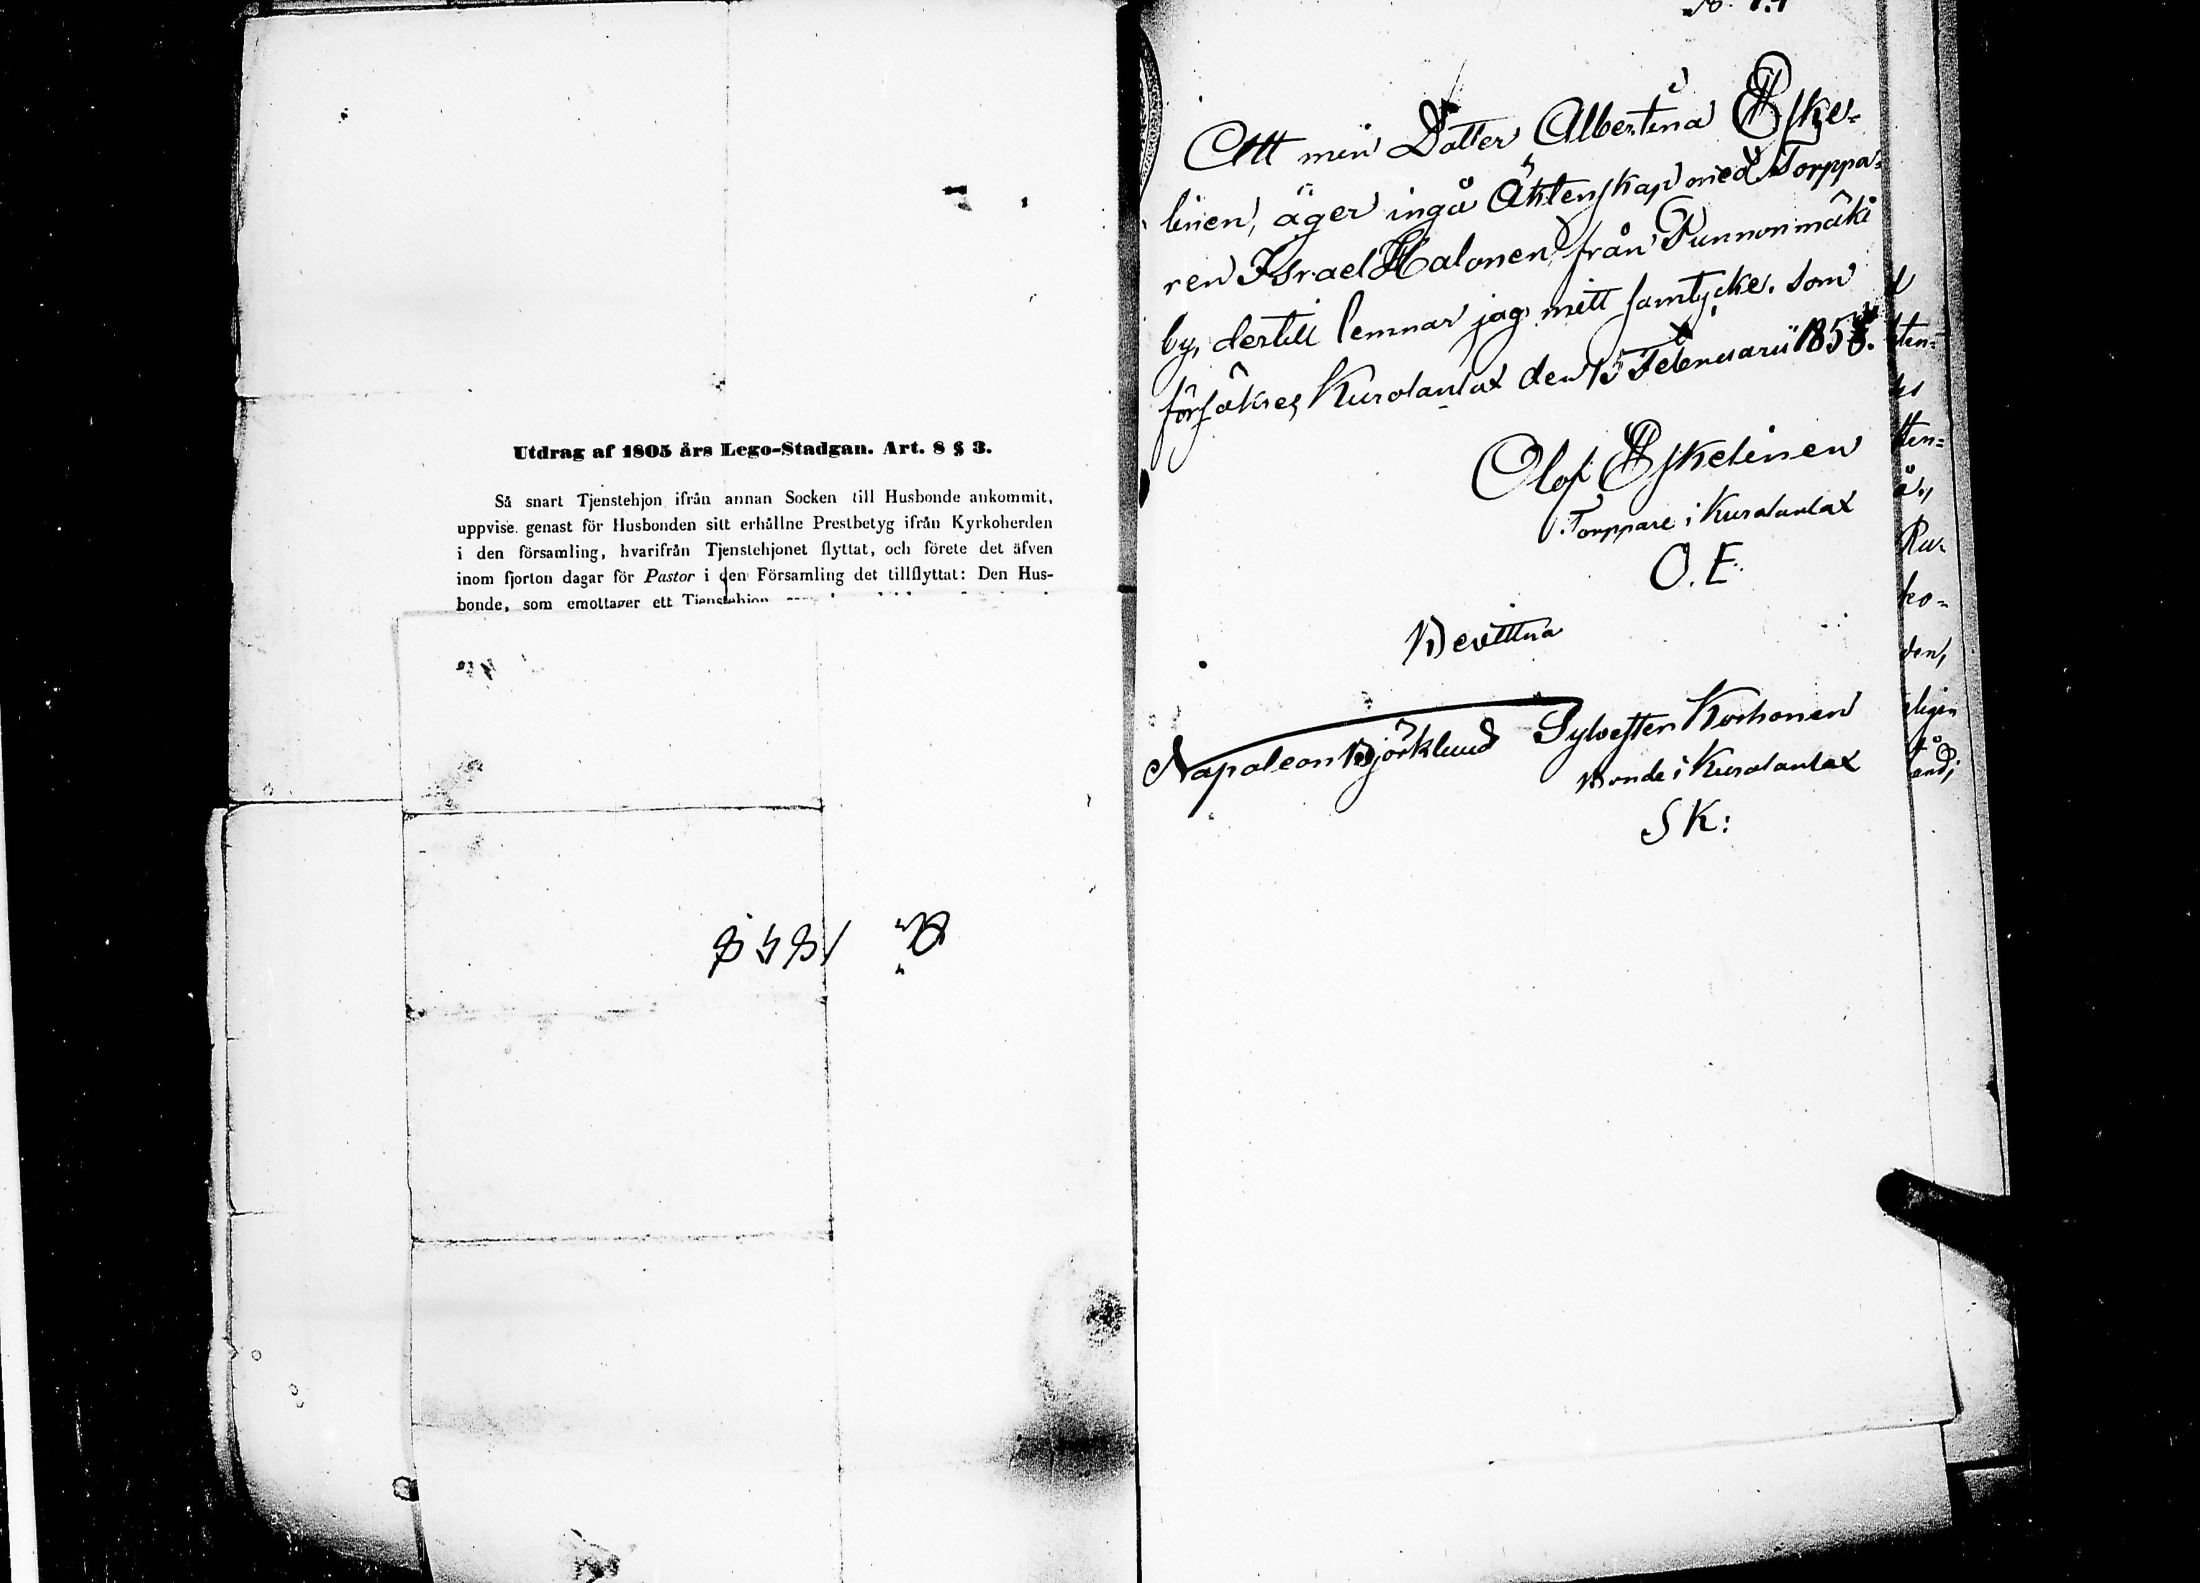 Utdrag af 1805 års Lego-Stadgan. Art. 8 § 3.
Så snart Tjenstehjon ifrån annan Socken till Husbonde ankommit,
uppvise genast för Husbonden sitt erhållne Prestbetyg ifrån Kyrkoherden
i den församling, hvarifrån Tjenstehjonet flyttat, och förete det äfven
inom fjorton dagar för Pastor i den Församling det tillflyttat: Den Hus-
bonde, som emottager ett Tjenstehjon
Att min Dotter Albertina Eske-
linen, äger ingå Äktenskap med Torppa-
ren Israel Halonen från Punnonmäki
by, dertill lemnar jag mitt samtycke. som
försäkres, Kurolanlax den 15 Februarii 1858.
Olof Eskelinen
Torppare i Kurolanlax
O. E.
Bevittna
Napoleon Björklund Sylvester Korhonen
Bonde i Kurolanlax
S K:
ten-
ten-
å.,
Ru-
ko-
den,
ligen
and;